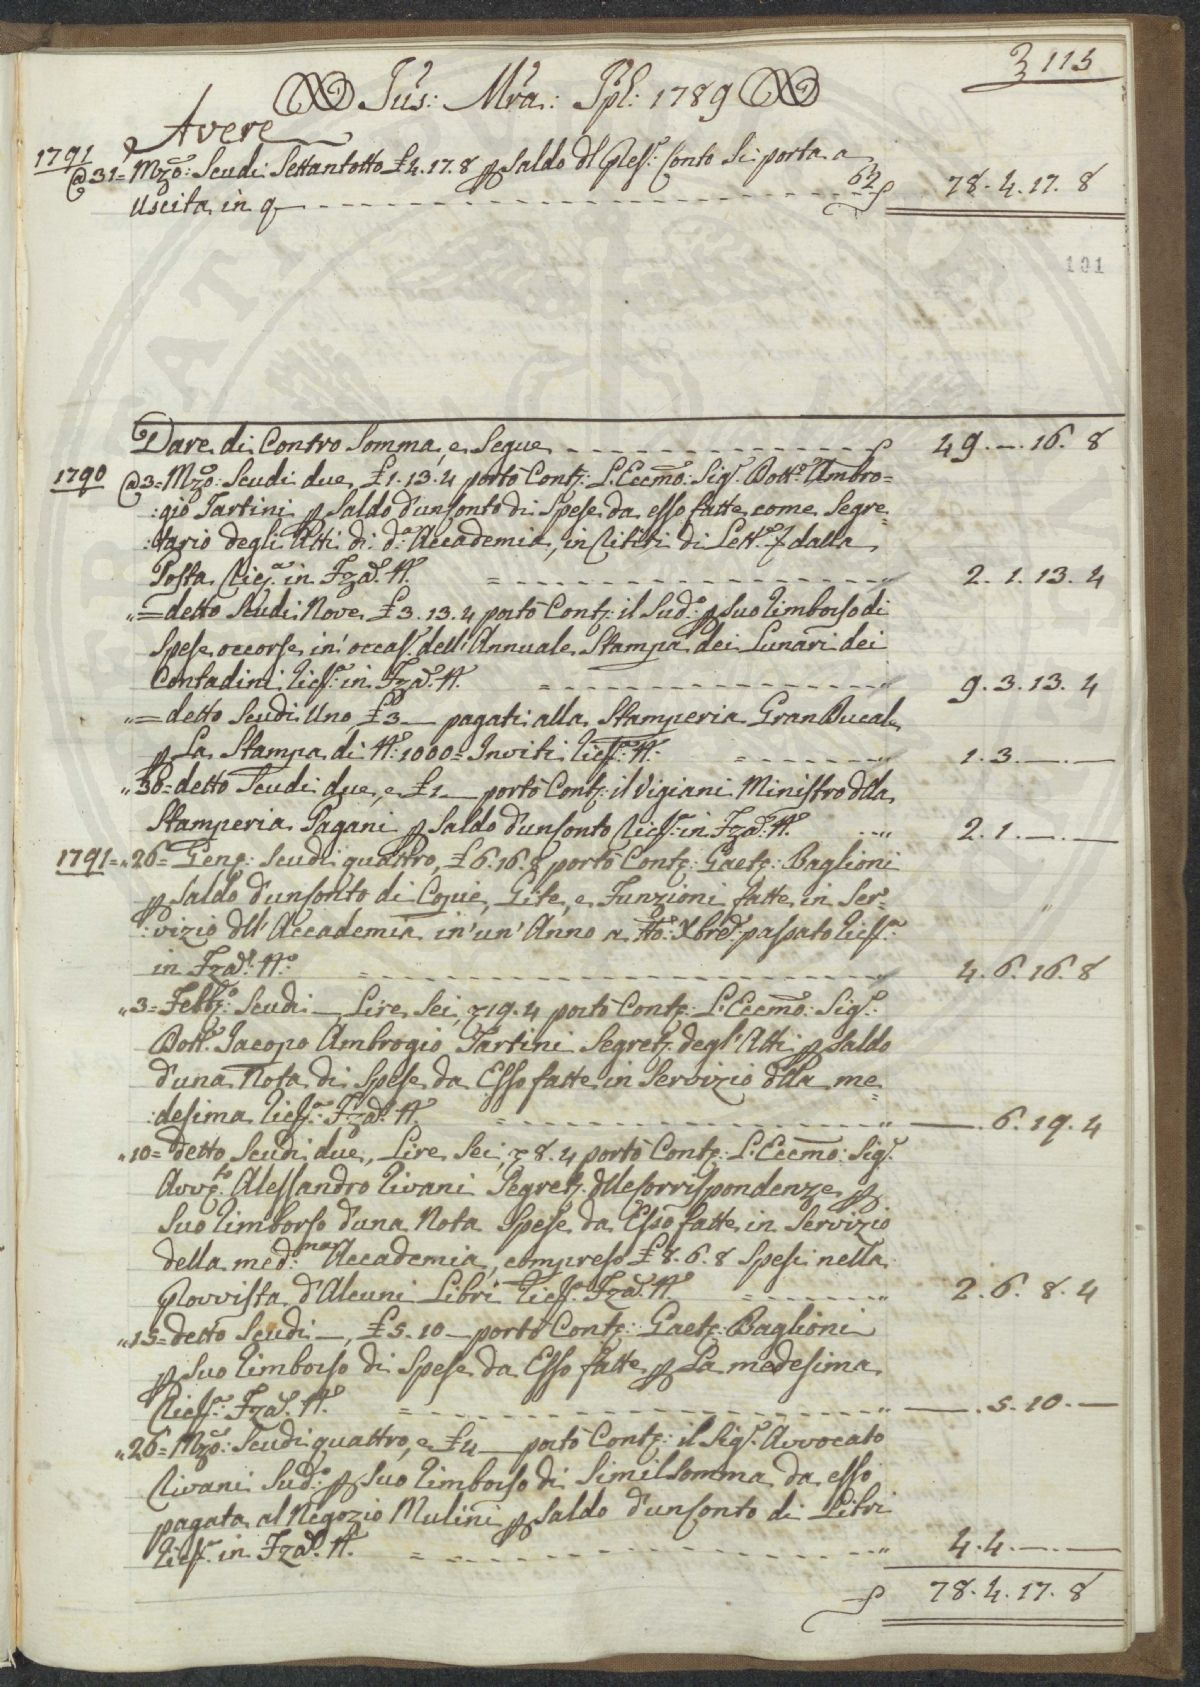 113
Jus: Mra: Ppl: 1789
Avere
1791
@ 31= Mzo: Scudi Settantotto £ 4.17.8 p Saldo del Pres: Conto Si porta a
Uscita in q 62 78. 4. 17. 8
101
Dare di Contro Somma, e Segue 49. — 16. 8
1790 @ 3= Mzo: Scudi due £ 1.13.4 portò Conti: L'Eccmo: Sigr: Dottr: Ambro=
:gio Tartini p Saldo d'un Conto di Spese da esso fatte come Segre=
:tario degli Atti di da: Accademia, in Ritiri di Lettre dalla
Posta Ricra: in Fza: N°. 2. 1. 13. 4
"= detto Scudi Nove £ 3.13.4 portò Conti: il Sudo: p Suo Rimborso di
Spese occorse in occas: dell'Annuale Stampa dei Lunari dei
Contadini Ricra: in Fza: N°. 9. 3. 13. 4
"= detto Scudi Uno, £ 3 — pagati alla Stamperia Gran Ducale
p La Stampa di N°. 1000= Inviti Ricra: N°. 1. 3. — . —
" 30= detto Scudi due, e £ 1 — portò Conti: il Vigiani Ministro della
Stamperia Pagani p Saldo d'un Conto Ricra: in Fza: N°. 2. 1. — . —
1791= " 26= Geno: Scudi quattro, £ 6.16.8 portò Conti: Gaeto: Baglioni
p Saldo d'un Conto di Copie, Gite, e Funzioni fatte in Ser=
:vizio dell'Accademia in un'Anno a tto: Xbre: passato Ricra:
in Fza: N°. 4. 6. 16. 8
" 3= Febbo: Scudi — Lire Sei, 19.4 portò Conti: L'Eccmo: Sigr:
Dottr: Jacopo Ambrogio Tartini Segreto: degl'Atti p Saldo
d'una Nota di Spese da Esso fatte in Servizio della me=
:desima Ricra: Fza: N°. — . 6. 19. 4
" 10= detto Scudi due, Lire Sei, 8.4 portò Conti: L'Eccmo: Sigr:
Avvto: Alessandro Rivani Segreto: delle Corrispondenze p
Suo Rimborso d'una Nota Spese da Esso fatte in Servizio
della medma: Accademia, compreso £ 8.6.8 Spesi nella
Provvista d'Alcuni Libri Ricra: Fza: N°. 2. 6. 8. 4
" 15= detto Scudi —, £ 5.10 — portò Conti: Gaeto: Baglioni
p Suo Rimborso di Spese da Esso fatte p La medesima
Ricra: Fza: N°. — . 5. 10. —
" 26= Mzo: Scudi quattro, e £ 4 — portò Conti: il Sigr: Avvocato
Rivani Sudo: p Suo Rimborso di Simil Somma da esso
pagata al Negozio Mulini p Saldo d'un Conto di Libri
Ricra: in Fza: N°. 4. 4. — . —
78. 4. 17. 8